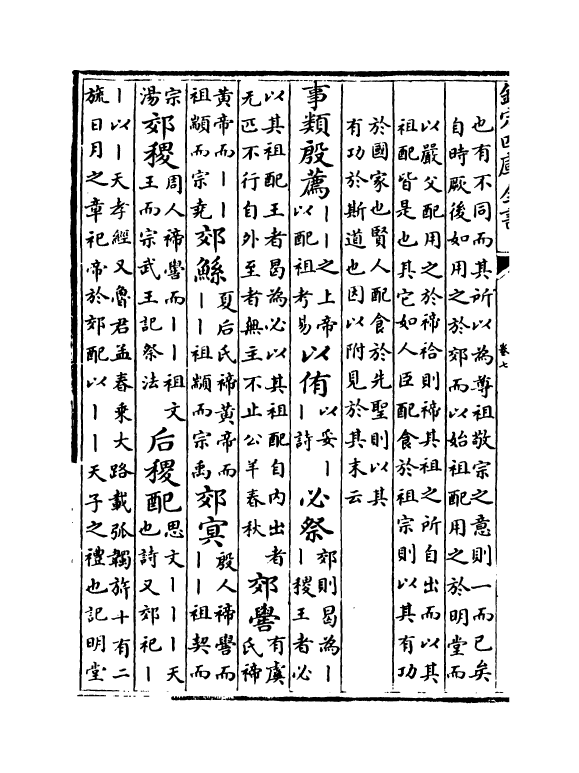 欽定四庫全書
卷七
也有不同而其所以為尊祖敬宗之意則一而已矣
自時厥後如用之於郊而以始祖配用之於明堂而
以嚴父配用之於禘祫則禘其祖之所自出而以其
祖配皆是也其它如人臣配食於祖宗則以其有功
於國家也賢人配食於先聖則以其
有功於斯道也因以附見於其末云
事類殷薦｜｜之上帝以配祖考易以侑以妥｜｜詩必祭郊則曷為｜｜稷王者必
以其祖配王者曷為必以其祖配自内出者无匹不行自外至者無主不止公羊春秋郊嚳有虞氏禘
黄帝而｜｜祖顓而宗堯郊鯀夏后氏禘黄帝而｜｜祖顓而宗禹郊冥殷人禘嚳而｜｜祖契而
宗湯郊稷周人禘嚳而｜｜祖文王而宗武王記祭法后稷配思文｜｜｜天也詩又郊祀｜
｜以｜天孝經又魯君孟春乘大路載弧韣旂十有二旒日月之章祀帝於郊配以｜｜天子之禮也記明堂